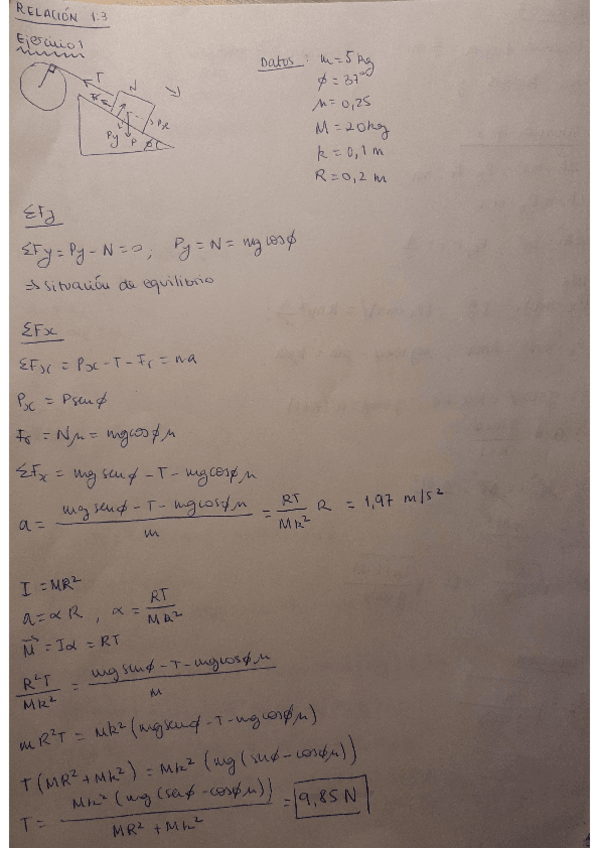 RELACIÓN 1:3
Ejercicio 1
T
N
Fr
Px
Py
P
ϕ
Datos: m = 5 kg
ϕ = 37º
μ = 0,25
M = 20 kg
k = 0,1 m
R = 0,2 m
ΣFy
ΣFy = Py - N = 0; Py = N = mg cosϕ
⇒ Situación de equilibrio
ΣFx
ΣFx = Px - T - Fr = ma
Px = P senϕ
Fr = Nμ = mg cosϕ μ
ΣFx = mg senϕ - T - mg cosϕ μ
a = (mg senϕ - T - mg cosϕ μ) / m = RT / Mk² R = 1,97 m/s²
I = MR²
a = α R, α = RT / Mk²
M⃗ = Iα = RT
R²T / Mk² = (mg senϕ - T - mg cosϕ μ) / m
mR²T = Mk² (mg senϕ - T - mg cosϕ μ)
T (MR² + Mk²) = Mk² (mg (senϕ - cosϕ μ))
T = Mk² (mg (senϕ - cosϕ μ)) / MR² + Mk² = 9,85 N